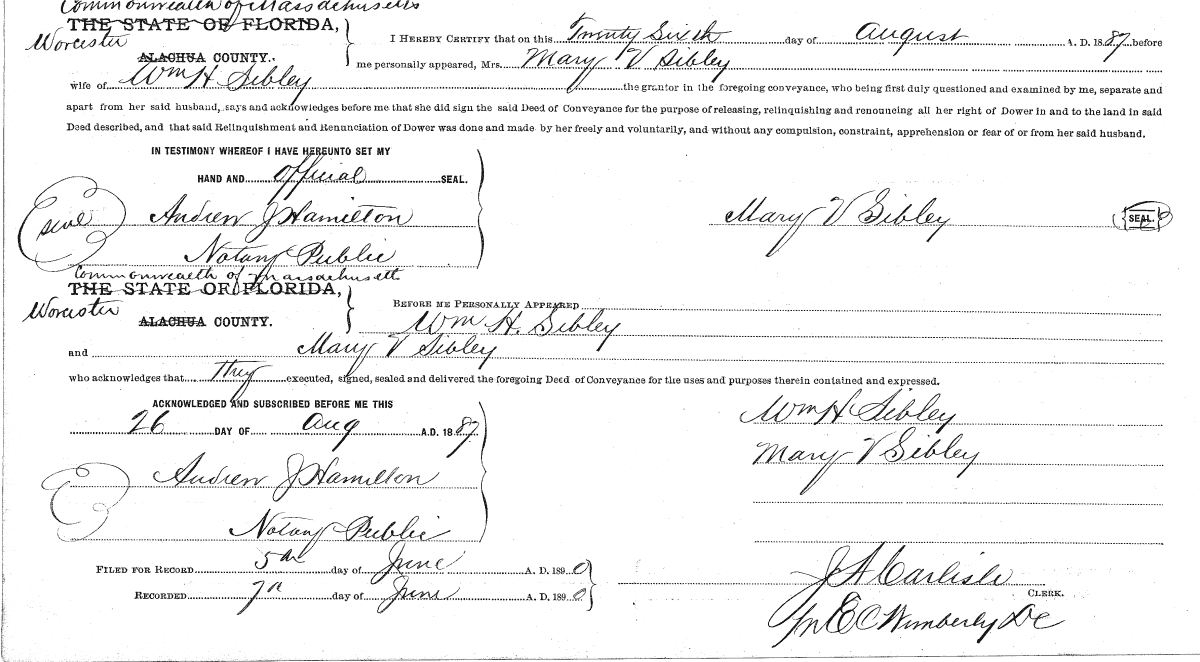 Commonwealth of Massachusetts
THE STATE OF FLORIDA,
Worcester
ALACHUA COUNTY.
I HEREBY CERTIFY that on this Twenty Sixth day of August A. D. 1887 before
me personally appeared, Mrs. Mary V Sibley
wife of Wm H Sibley the grantor in the foregoing conveyance, who being first duly questioned and examined by me, separate and
apart from her said husband, says and acknowledges before me that she did sign the said Deed of Conveyance for the purpose of releasing, relinquishing and renouncing all her right of Dower in and to the land in said
Deed described, and that said Relinquishment and Renunciation of Dower was done and made by her freely and voluntarily, and without any compulsion, constraint, apprehension or fear of or from her said husband.
IN TESTIMONY WHEREOF I HAVE HEREUNTO SET MY
HAND AND official SEAL.
Seal Andrew J Hamilton
Mary V Sibley SEAL.
Notary Public
Commonwealth of Massachusetts
THE STATE OF FLORIDA,
Worcester
ALACHUA COUNTY.
BEFORE ME PERSONALLY APPEARED
Wm H. Sibley
and Mary V Sibley
who acknowledges that They executed, signed, sealed and delivered the foregoing Deed of Conveyance for the uses and purposes therein contained and expressed.
ACKNOWLEDGED AND SUBSCRIBED BEFORE ME THIS
26 DAY OF Aug A.D. 1887
Wm H Sibley
Mary V Sibley
Andrew J Hamilton
Notary Public
FILED FOR RECORD 5th day of June A. D. 1890
RECORDED 7th day of June A. D. 1890
J A Carlisle
CLERK.
E C Wimberly DC